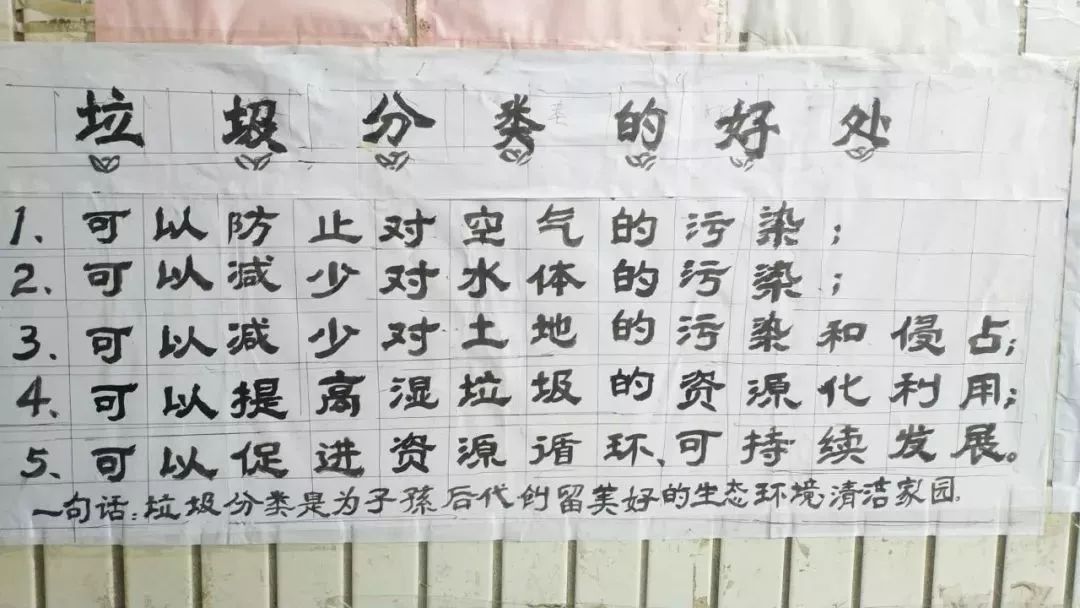 垃圾分类的好处
1、可以防止对空气的污染；
2、可以减少对水体的污染；
3、可以减少对土地的污染和侵占；
4、可以提高湿垃圾的资源化利用；
5、可以促进资源循环、可持续发展。
一句话：垃圾分类是为子孫后代创留美好的生态环境清洁家园.